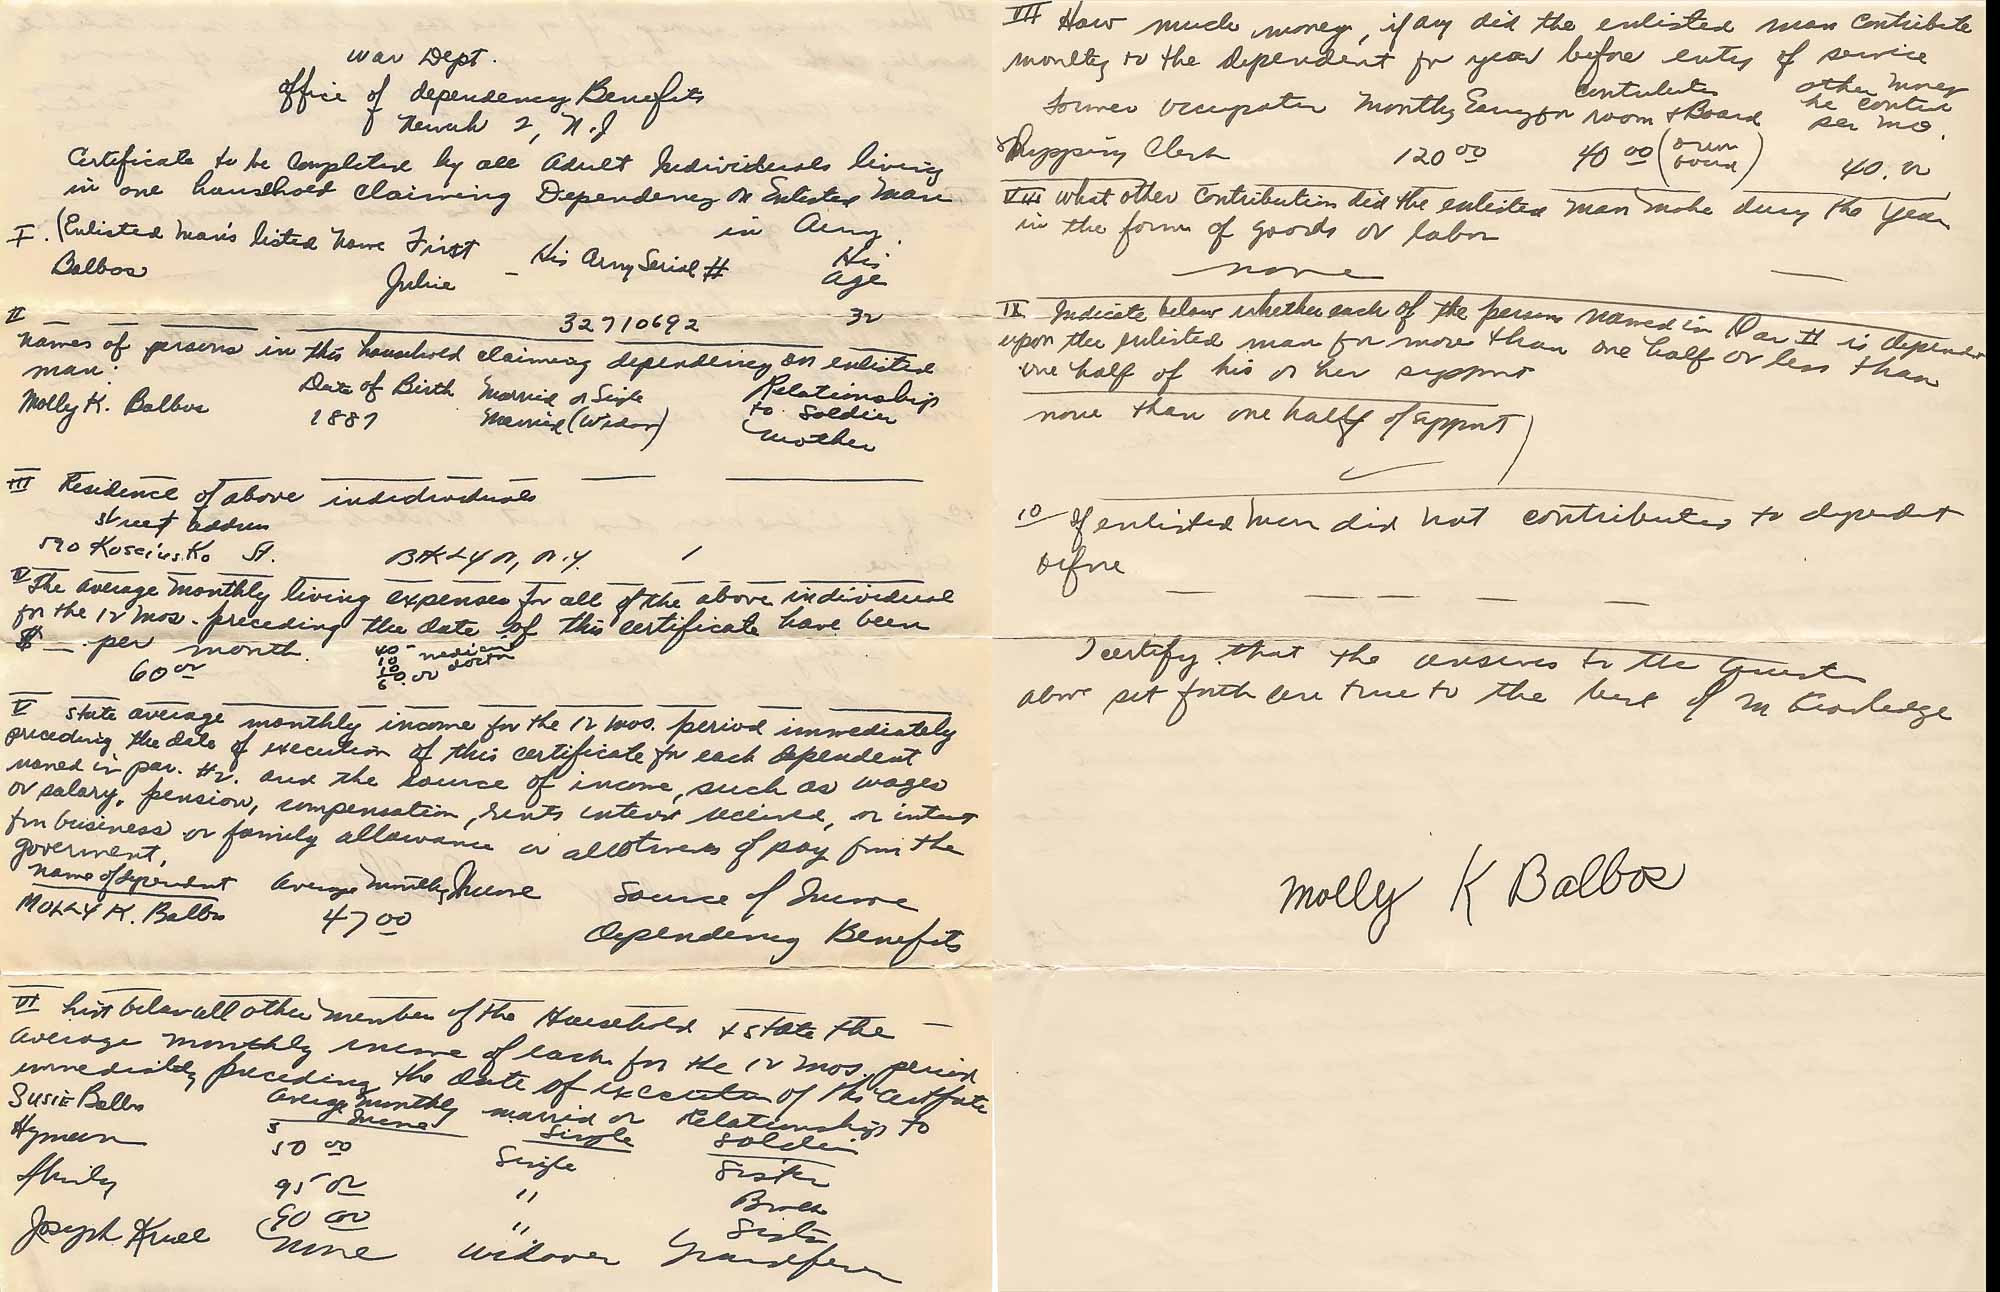 War Dept.
Office of dependency Benefits
Newark 2, N.J
Certificate to be Completed by all Adult Individuals living
in one household claiming Dependency on Enlisted Man
in Army.
I. (Enlisted Man's listed Name First - His Army Serial # His Age
Balbos Julie
32710692 32
II
names of persons in this household claiming dependency on enlisted
man: Date of Birth Married or Single Relationship to Soldier
Molly K. Balbos 1887 Married (Widow) Mother
III Residence of above individuals
Street address
590 Kosciusko St. BKLYN, N.Y.
IV The average monthly living expenses for all of the above individual
for the 12 mos. preceding the date of this certificate have been
$ — per month. 40 -
60 00 10 medicine
10 doctor
V State average monthly income for the 12 mos. period immediately
preceding the date of execution of this certificate for each dependent
named in par. #2. and the source of income, such as wages
or salary, pension, compensation, rents received, or
business or family allowance or of pay from the
goverment.
Name of dependent Average Monthly Income Source of Income
MOLLY K. Balbos 47 00 Dependency Benefits
VI List below all other member of the Household & state the
average monthly income of each for the 12 mos. period
immediately preceding the date of execution of this certificate
average monthly Income married or Single Relationship to Soldier
Susie Balbos $ 50 00 Single Sister
Hyman 95 00 " Brother
90 00 " Sister
Joseph None widower
VII How much money, if any did the enlisted man contribute
monthly to the dependent for year before entry of service
former occupation Monthly contributes for room & Board other money he contri per mo.
Shipping Clerk 120 00 40 00 40.00
VIII What other contribution did the enlisted man make during the year
in the form of goods or labor
none
IX Indicate below whether each of the persons named in Par II is depend
upon the enlisted man for more than one half or less than
one half of his or her support
more than one half of support
10 If enlisted man did not contribute to dependent
before
I certify that the answers to the
above set forth are true to the best of knowledge
Molly K Balbos